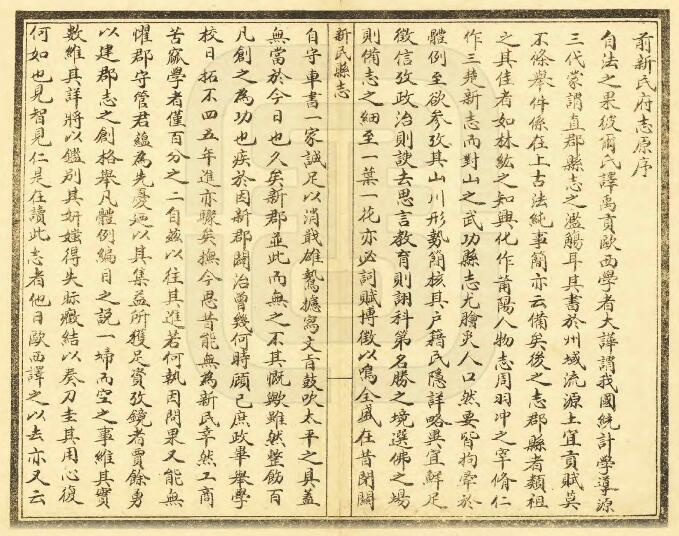 前新民府志原序
自法之果彼爾氏譯禹貢歐西學者大譁謂我國統計學導源
三代蒙謂直郡縣志之濫觴耳其書於州域流源土宜貢賦莫
不條舉件係在上古法純事簡亦云備矣後之志郡縣者類祖
之其佳者如林紘之知興化作莆陽人物志周羽冲之宰脩仁
作三楚新志而對山之武功縣志尤膾炙人口然要皆拘牽於
體例至欲叅攷其山川形勢簡核其户籍民隱詳略異宜鮮足
徵信攷政治則諛去思言教育則詡科第名勝之境選佛之場
則備志之細至一葉一花亦必詞賦博徵以鳴全盛在昔閉關
新民縣志
自守車書一家誠足以消戢雄鷙攄寫文盲鼓吹太平之具蓋
無當於今日也久矣新郡並此而無之不其慨歟雖然整飭百
凡創之為功也疾於因新郡闢治曾幾何時顧已庶政畢舉學
校日拓不四五年進亦驟矣撫今思昔能無為新民幸然工商
苦窳學者僅百分之二自茲以往其進若何執因問果又能無
懼郡守管君蘊為先憂廼以其集益所獲足資攷鏡者賈餘勇
以建郡志之創格舉凡體例編目之說一埽而空之事維其實
數維其詳將以鑑別其妍媸得失眎癥結以奏刀圭其用心復
何如也見智見仁是在讀此志者他日歐西譯之以去亦又云